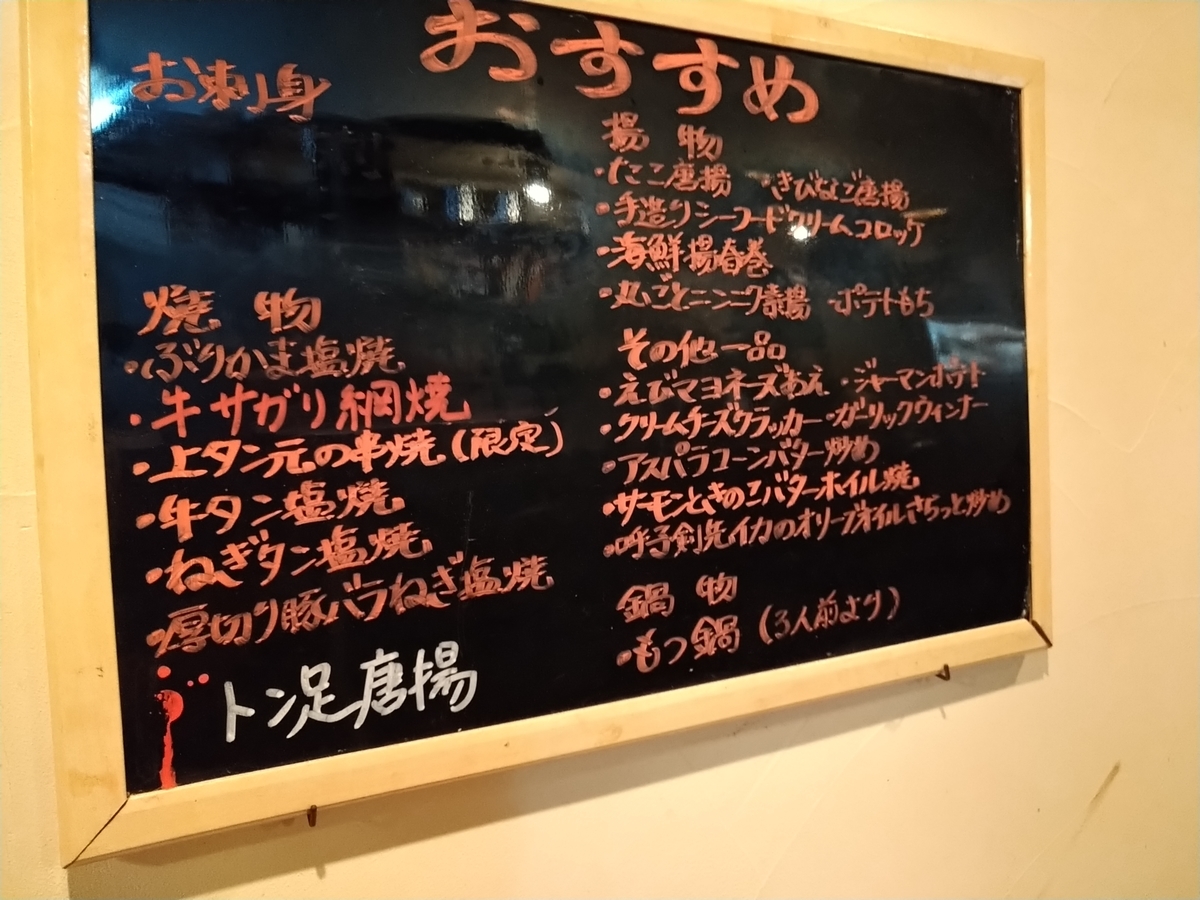 おすすめ
お刺身
焼物
・ぶりかま塩焼
・牛サガリ網焼
・上タン元の串焼(限定)
・牛タン塩焼
・ねぎタン塩焼
・厚切り豚バラねぎ塩焼
トン足唐揚
揚物
・たこ唐揚 ・きびなご唐揚
・手造りシーフードクリームコロッケ
・海鮮揚春巻
・丸ごとニンニク素揚 ・ポテトもち
その他一品
・えびマヨネーズあえ ・ジャーマンポテト
・クリームチーズクラッカー ・ガーリックウィンナー
・アスパラコーンバター炒め
・サーモンときのこバターホイル焼
・呼子剣先イカのオリーブオイルさらっと炒め
鍋物
・もつ鍋(3人前より)